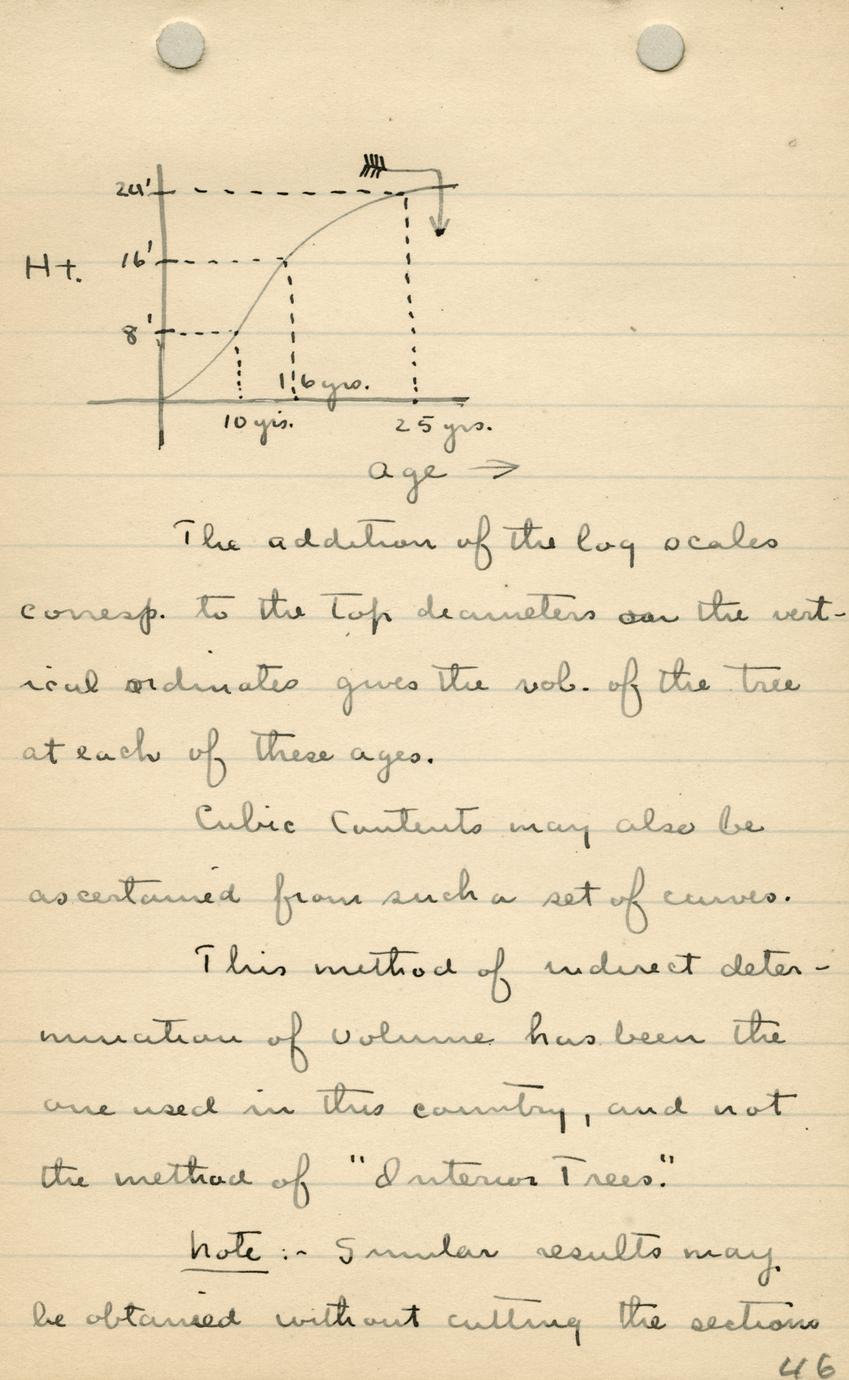 24'
Ht. 16'
8'
16 yrs.
10 yrs. 25 yrs.
Age →
The addition of the log scales
corresp. to the top diameters on the vert-
ical ordinates gives the vol. of the tree
at each of these ages.
Cubic Contents may also be
ascertained from such a set of curves.
This method of indirect deter-
mination of volume has been the
one used in this country, and not
the method of "Interior Trees."
Note :- Similar results may
be obtained without cutting the sections
46